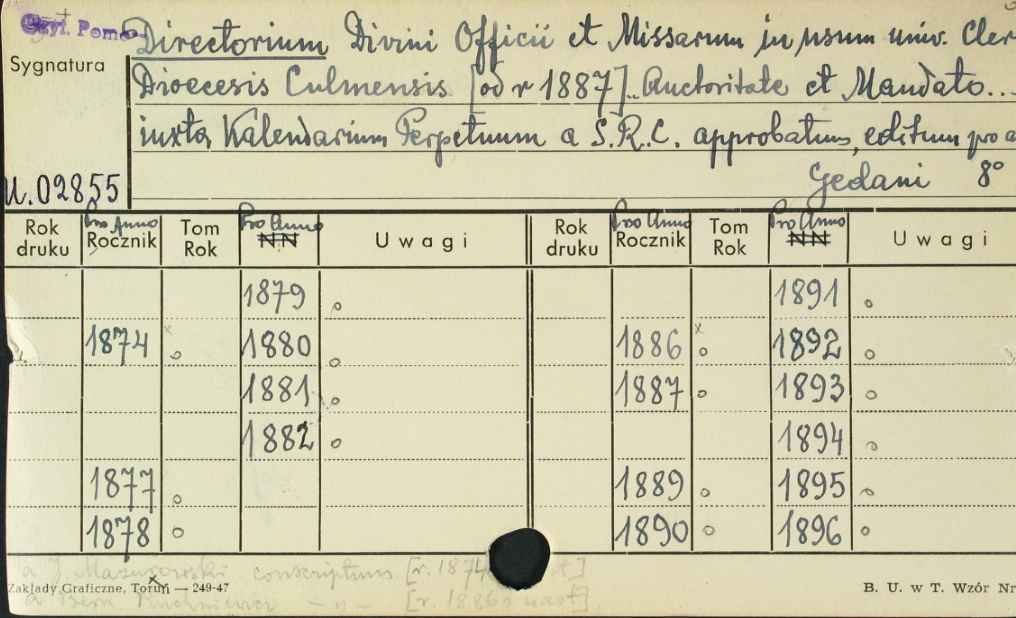 Czyt. Pomo
Directorium Divini Officii et Missarum in usum univ. Cler
Sygnatura
Dioecesis Culmensis [od r 1887].. Auctoritate et Mandato...
iuxta Kalendarium Perpetuum a S.R.C. approbatum, editum pro a
Gedani 8°
U.02855
Rok druku Pro Anno Rocznik Tom Rok Pro Anno NN Uwagi Rok druku Pro Anno Rocznik Tom Rok Pro Anno NN Uwagi
1879 o 1891 o
1874 x o 1880 o 1886 x o 1892 o
1881 o 1887 o 1893 o
1882 o 1894 o
1877 o 1889 o 1895 o
1878 o 1890 o 1896 o
a J. Mazurowski conscriptum [r. 1874
Zakłady Graficzne, Toruń — 249-47 B. U. w T. Wzór Nr
a Bern. — " — [r. 1886 i nast]